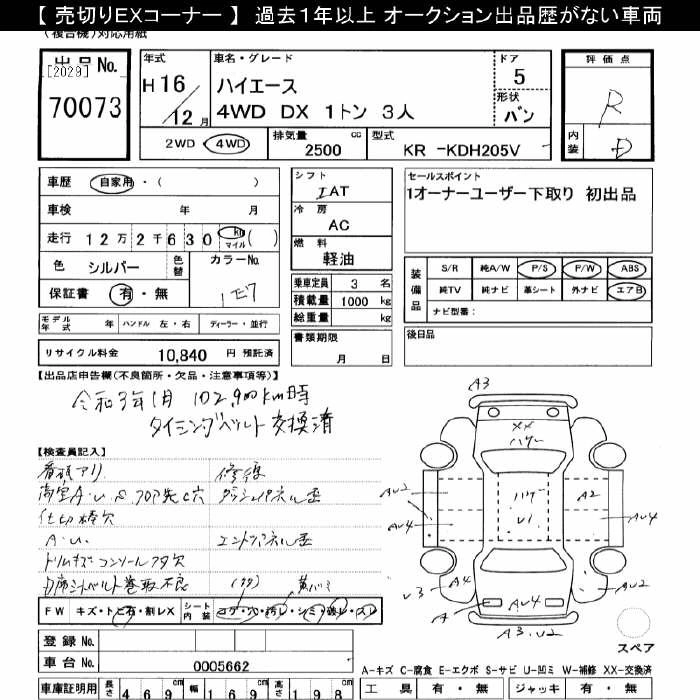 【 売切りEXコーナー 】 過去１年以上 オークション出品歴がない車両
(複合機)対応用紙
出品No.
[2029]
70073
年式
H 16
12 月
車名・グレード
ハイエース
4WD DX 1トン 3人
ドア
5
形状
バン
2WD・4WD
排気量
2500 cc
型式
KR -KDH205V
評価点
R
内装
D
車歴 自家用・( )
車検 年 月
走行 12万2千630 km マイル ( )
色 シルバー 色替
カラーNo.
1E7
保証書 有・無
シフト
IAT
冷房
AC
燃料
軽油
乗車定員 3 名
積載量 1000 kg
総重量 kg
セールスポイント
1オーナーユーザー下取り 初出品
装備品
S/R 純A/W P/S P/W ABS
純TV 純ナビ 革シート 外ナビ エアB
ナビ型番:
モデル年式 年 ハンドル 左・右 ディーラー・並行
書類期限
月 日
後日品
リサイクル料金 10,840 円 預託済
【出品店申告欄(不良箇所・欠品・注意事項等)】
令和3年1月 102,900km時
タイミングベルト交換済
【検査員記入】
看板アリ
修復
仕切棒欠
A・U
トリムキズ コンソールフタ欠
D席シートベルト巻取不良
A3
XX
ハゲ
U1
A2
AU2
AU4
AU4
U3
A4
A
AU4
A4
AU2
A3.U2
FW キズ・トビ石・割レX
シート内装 コゲ・穴・汚レ・シミ・破レ・スレ
登録No.
車台No. 0005662
スペア
A-キズ C-腐食 E-エクボ S-サビ U-凹ミ W-補修 XX-交換済
車庫証明用 長さ 469 cm 幅 169 cm 高さ 198 cm
工具 有・無 ジャッキ 有・無